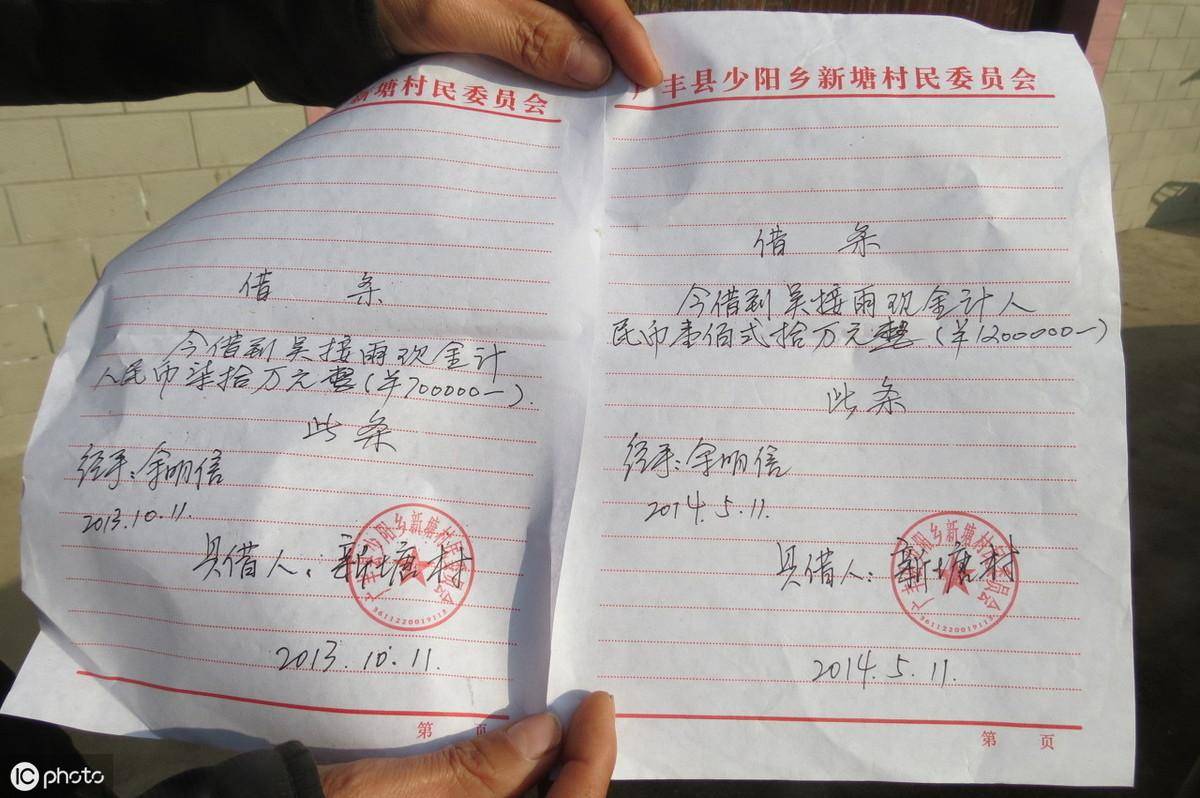 塘村民委员会
借 条
今借到吴接雨现金计
人民币柒拾万元整(羊700000—).
此条
经手:余明信
2013.10.11.
具借人:新塘村
少阳乡新塘村民委员会
3611220019112
2013.10.11.
第 页
广丰县少阳乡新塘村民委员会
借 条
今借到吴接雨现金计人
民币壹佰弍拾万元整(羊1200000—)
此条
经手:余明信
2014.5.11.
具借人:新塘村
阳乡新塘
3611220019112
2014.5.11.
第 页
IC photo